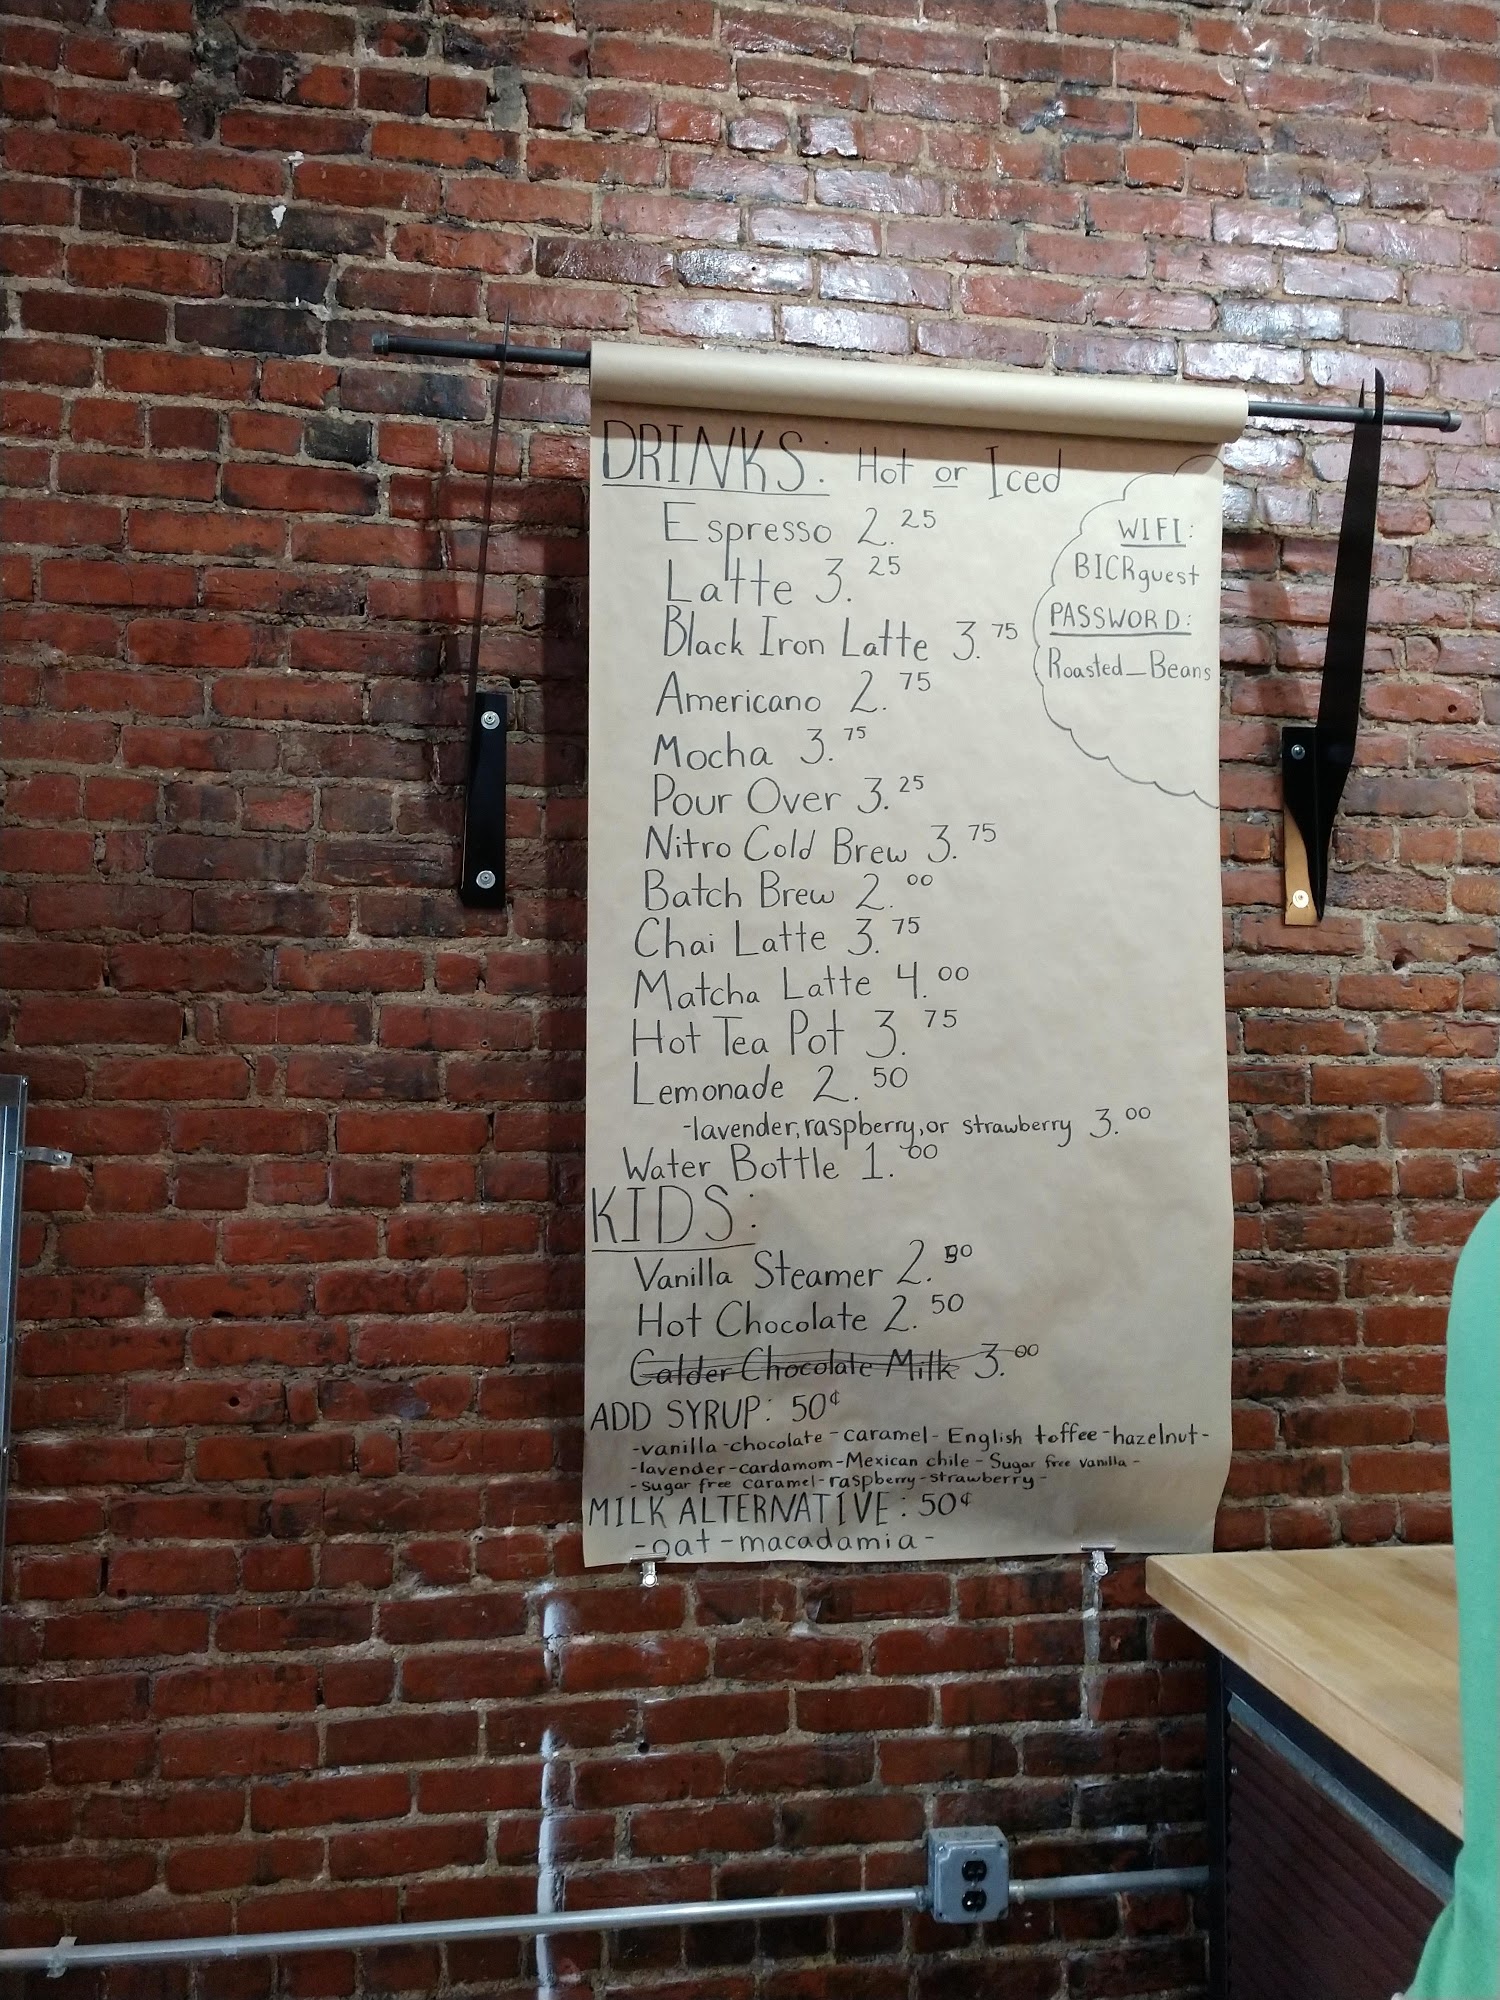 DRINKS: Hot or Iced
Espresso 2.25
Latte 3.25
Black Iron Latte 3.75
Americano 2.75
Mocha 3.75
Pour Over 3.25
Nitro Cold Brew 3.75
Batch Brew 2.00
Chai Latte 3.75
Matcha Latte 4.00
Hot Tea Pot 3.75
Lemonade 2.50
-lavender, raspberry, or strawberry 3.00
Water Bottle 1.00
WIFI:
BICRguest
PASSWORD:
Roasted_Beans
KIDS:
Vanilla Steamer 2.50
Hot Chocolate 2.50
Calder Chocolate Milk 3.00
ADD SYRUP: 50¢
-vanilla-chocolate-caramel-English toffee-hazelnut-
-lavender-cardamom-Mexican chile-Sugar free vanilla-
-sugar free caramel-raspberry-strawberry-
MILK ALTERNATIVE: 50¢
-oat-macadamia-